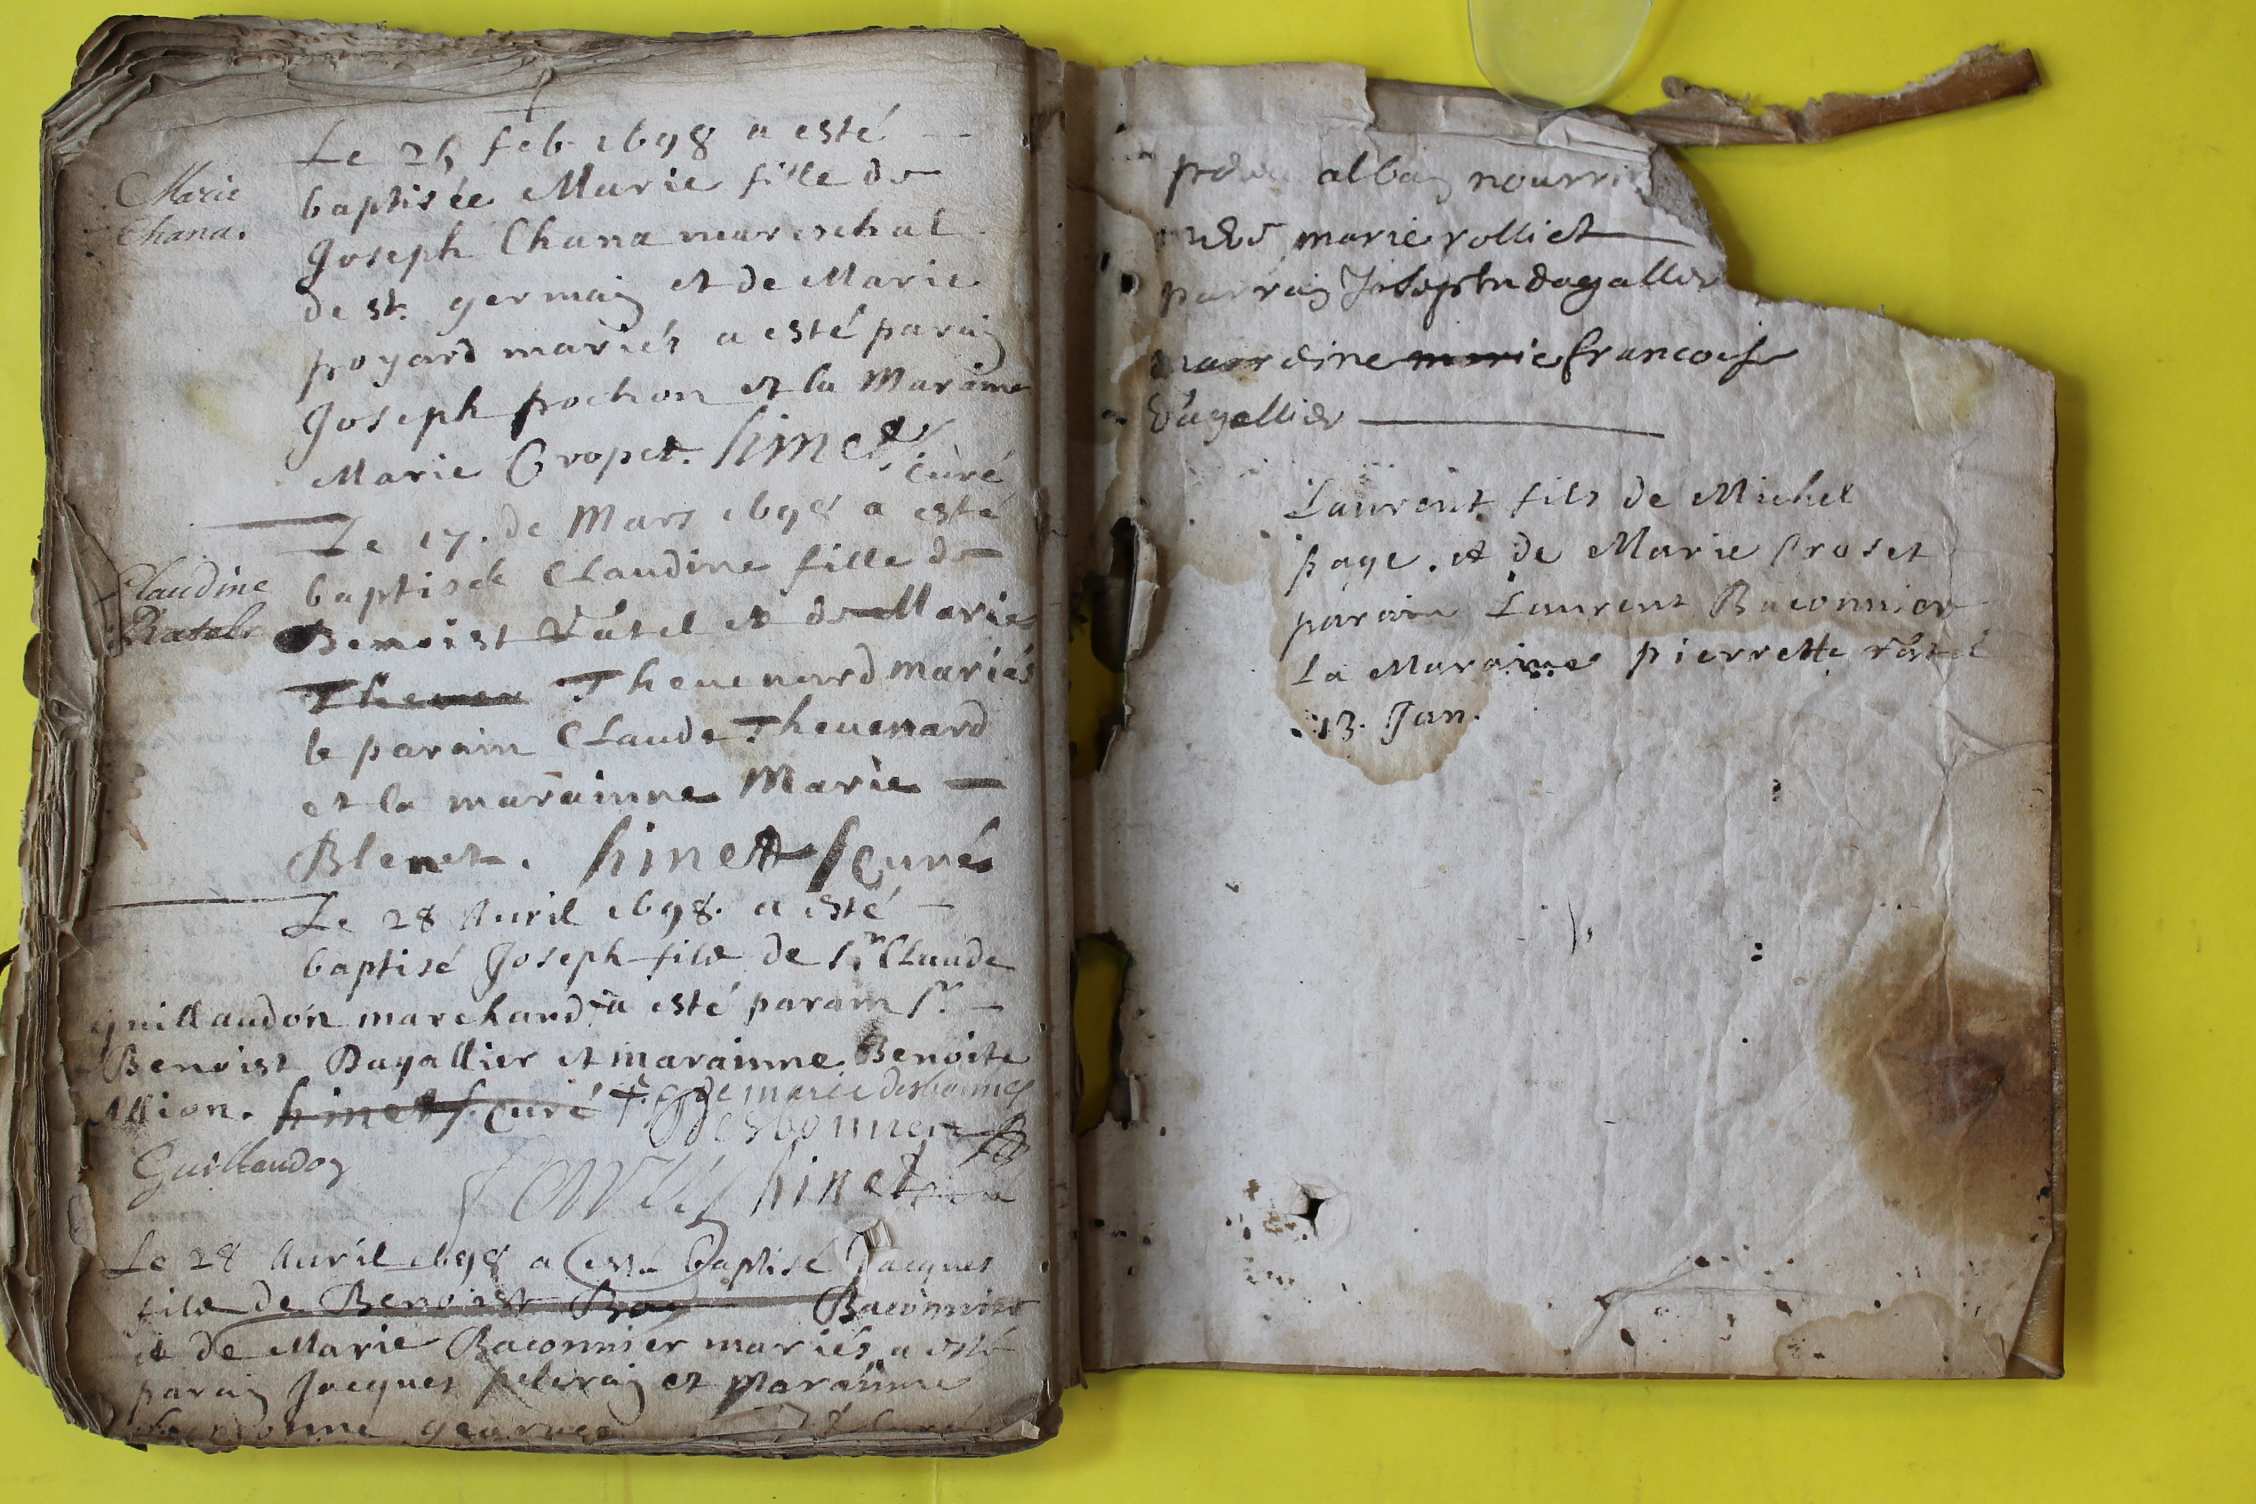 Le 25 feb. 1698 a esté
Marie
Chana.
baptisée Marie fille de
Joseph Chana mareschal
de st. germain et de Marie
poyard mariés a esté parain
Joseph pochon et la Marainne
Marie Gropet. hinet
curé
Le 17. de Mars 1698 a esté
Claudine
Ratel
baptisée Claudine fille de
Benoist Ratel et de Marie
Theven Thevenard mariés
le parain Claude Thevenard
et la marainne Marie
Blenet. hinet curé
Le 28 Auril 1698. a esté
baptisé Joseph fils de sr. Claude
guillaudon marchand a esté parain sr.
Benoist Dagallier et marainne Benoite
Allion. hinet curé marie desbonnes
desbonnes
Guillaudon
hinet
Le 28 Auril 1698 a esté baptisé Jacques
fils de Benoist Baconnier
et de Marie Baconnier mariés a esté
parain Jacques pelerain et Marainne
alban nourri
marie rolliet
parrain Joseph dagallier
marie francoise
dagallier
Laurent fils de Michel
page. et de Marie Croset
parain Laurent Baconnier
La Marainne pierrette ratel
13. Jan.